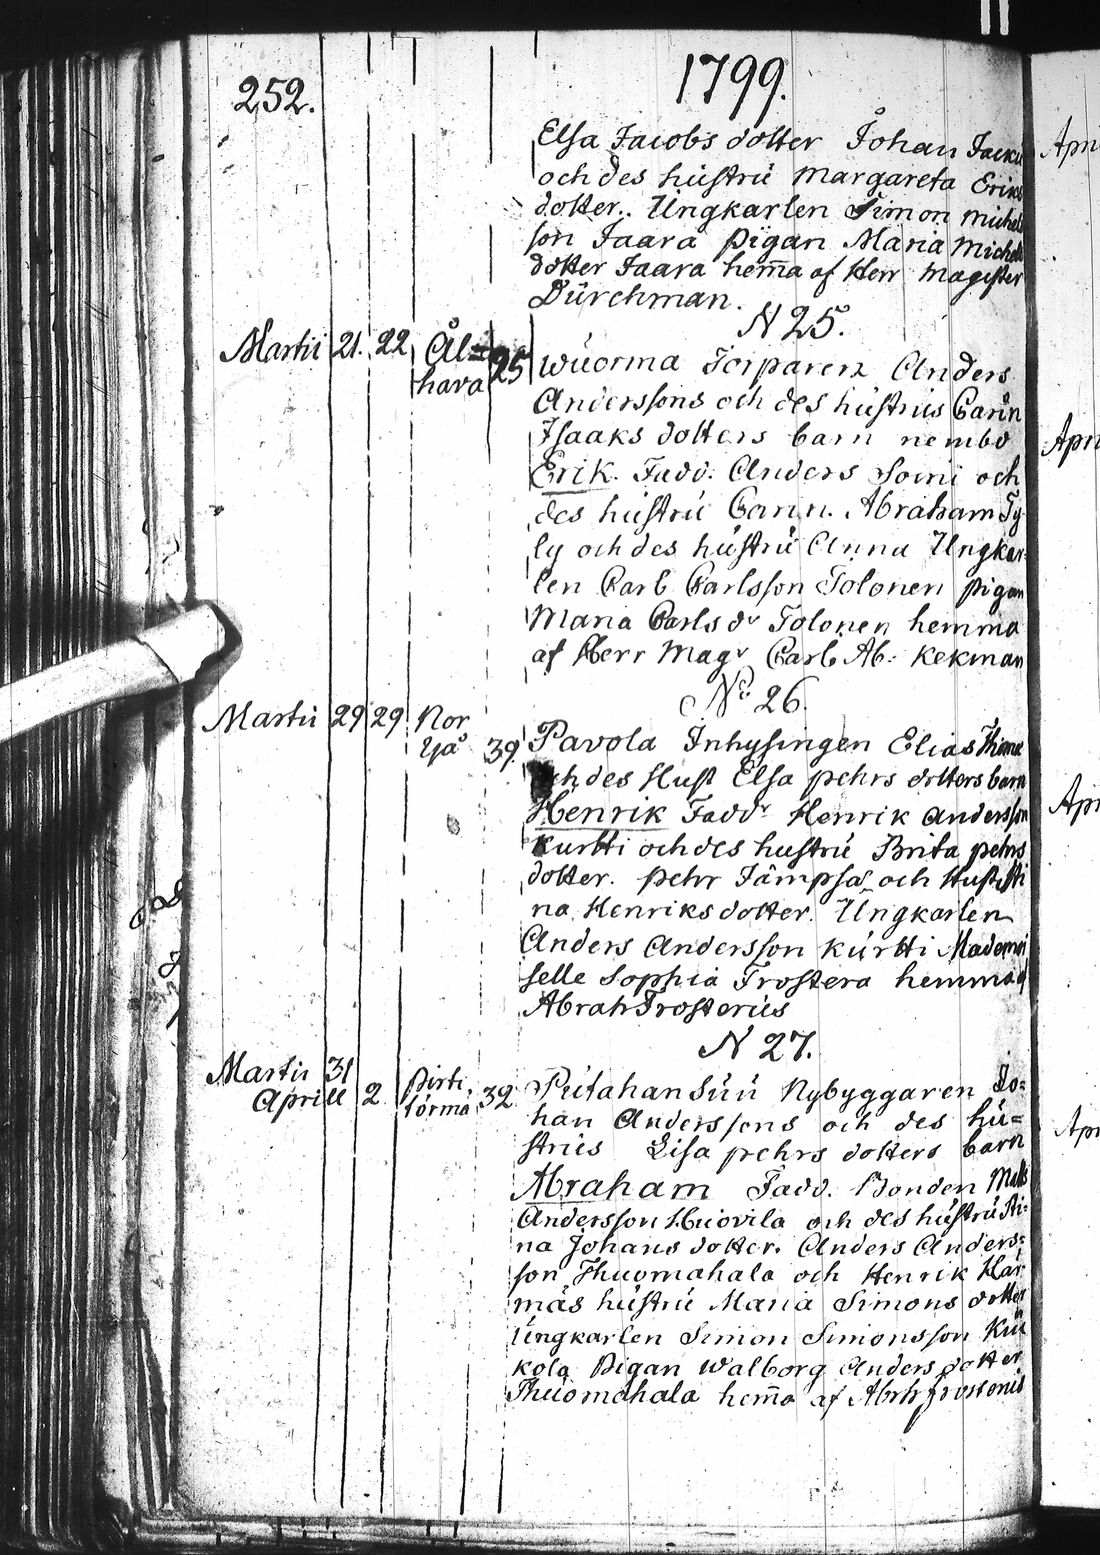 252.
1799.
Elsa Jacobs dotter Johan
och des hustru Margareta Eriks
dotter. Ungkarlen Simon Michels
son Jaara pigan Maria Michels
dotter Jaara hem̄a af Herr Magister
Dürchman.
N 25.
Martii 21. 22 Ål=
hava 25
Wuorma Torparen Anders
Anderssons och des hustrus Carin
Isaaks dotters barn nembd
Erik. Fadd: Anders Soini och
des hustru Carin. Abraham Ty
ly och des hustru Anna Ungkar
len Carl Carlsson Tolonen pigan
Maria Carls dr Tolonen hemma
af Herr Magr Carl Ab: Kekman
No 26.
Martii 29 29 Nor
39.
Pavola Inhysingen Elias
och des Hust Elsa pehrs dotters barn
Henrik Faddr Henrik Andersson
Kurtti och des hustru Brita pehrs
dotter. pehr Jämpsä och Hust Sti
na Henriks dotter. Ungkarlen
Anders Andersson Kurtti Mademoi
selle Sophia Frostera hemma af
Abrah Frosterus
N 27.
Martii 31
Aprill 2 Pirti
törmä 32
Peitahan Suu Nybyggaren Jo=
han Anderssons och des hu=
strus Lisa pehrs dotters barn
Abraham Fadd. Bonden Matts
Andersson Huovila och des hustru Sti=
na Johans dotter. Anders Anders=
son Thuomahala och Henrik Här
mäs hustru Maria Simons dotter
Ungkarlen Simon Simonsson
kola Pigan Walborg Anders dotter
Thuomahala hem̄a af Abrh Frosterus
Apri
Apri
Apr
Apr